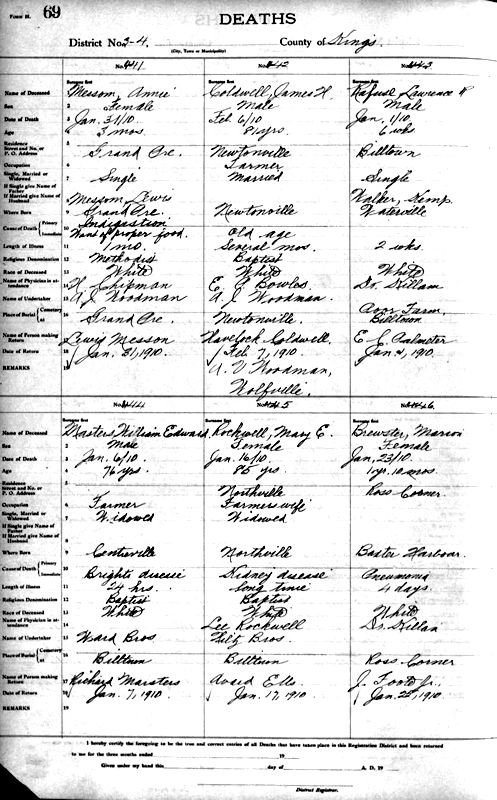 FORM H. 69
DEATHS
District No. 3-4. County of Kings
(City, Town or Municipality)
No. 441 No. 442 No. 443
Surname first Surname first Surname first
Name of Deceased 1 Messom, Annie Coldwell, James H. Rafuse Lawrence R
Sex 2 Female Male Male
Date of Death 3 Jan. 31/10 Feb. 6/10 Jan. 1/10
Age 4 3 mos. 81 yrs. 6 wks
Residence Street and No. or P. O. Address 5 Grand Pre. Newtonville Billtown
Occupation 6 Farmer
Single, Married or Widowed 7 Single Married Single
If Single give Name of Father If Married give Name of Husband 8 Messom, Lewis Walker, Kemp.
Where Born 9 Grand Pre Newtonville Waterville
Cause of Death Primary Immediate 10 Indigestion
Want of proper food. Old age
Length of Illness 11 1 mo. Several mos. 2 wks.
Religious Denomination 12 Methodist Baptist
Race of Deceased 13 White White White
Name of Physician in attendance 14 H. Chipman E. A. Bowles Dr. Killam
Name of Undertaker 15 A. J. Woodman A. J. Woodman.
Place of Burial Cemetery at 16 Grand Pre Newtonville. Poor Farm, Billtown
Name of Person making Return 17 Lewis Messom Havelock Coldwell. E. L. Palmeter
Date of Return 18 Jan. 31, 1910. Feb. 7, 1910. Jan 4, 1910.
REMARKS 19 A. V. Woodman,
Wolfville.
No. 444 No. 445 No. 446
Surname first Surname first Surname first
Name of Deceased 1 Masters, William Edward Rockwell, Mary E. Brewster, Marion
Sex 2 Male Female Female
Date of Death 3 Jan. 6/10 Jan. 16/10 Jan. 23/10
Age 4 76 yrs. 85 yrs. 1 yr. 10 mos
Residence Street and No. or P. O. Address 5 Northville Ross Corner
Occupation 6 Farmer Farmers wife
Single, Married or Widowed 7 Widowed Widowed
If Single give Name of Father If Married give Name of Husband 8
Where Born 9 Centreville Northville Baxter Harbour.
Cause of Death Primary Immediate 10 Brights disease Kidney disease Pneumonia
Length of Illness 11 24 hrs. long time 4 days.
Religious Denomination 12 Baptist Baptist
Race of Deceased 13 White White White
Name of Physician in attendance 14 Lee Rockwell Dr. Killam
Name of Undertaker 15 Ward Bros Bros.
Place of Burial Cemetery at 16 Billtown Billtown Ross Corner
Name of Person making Return 17 Richard Marsters Avard Ells J. Foote Jr.
Date of Return 18 Jan. 7, 1910. Jan. 17, 1910. Jan. 25, 1910.
REMARKS 19
I hereby certify the foregoing to be the true and correct entries of all Deaths that have taken place in this Registration District and been returned
to me for the three months ended 19
Given under my hand this day of A. D. 19
District Registrar.